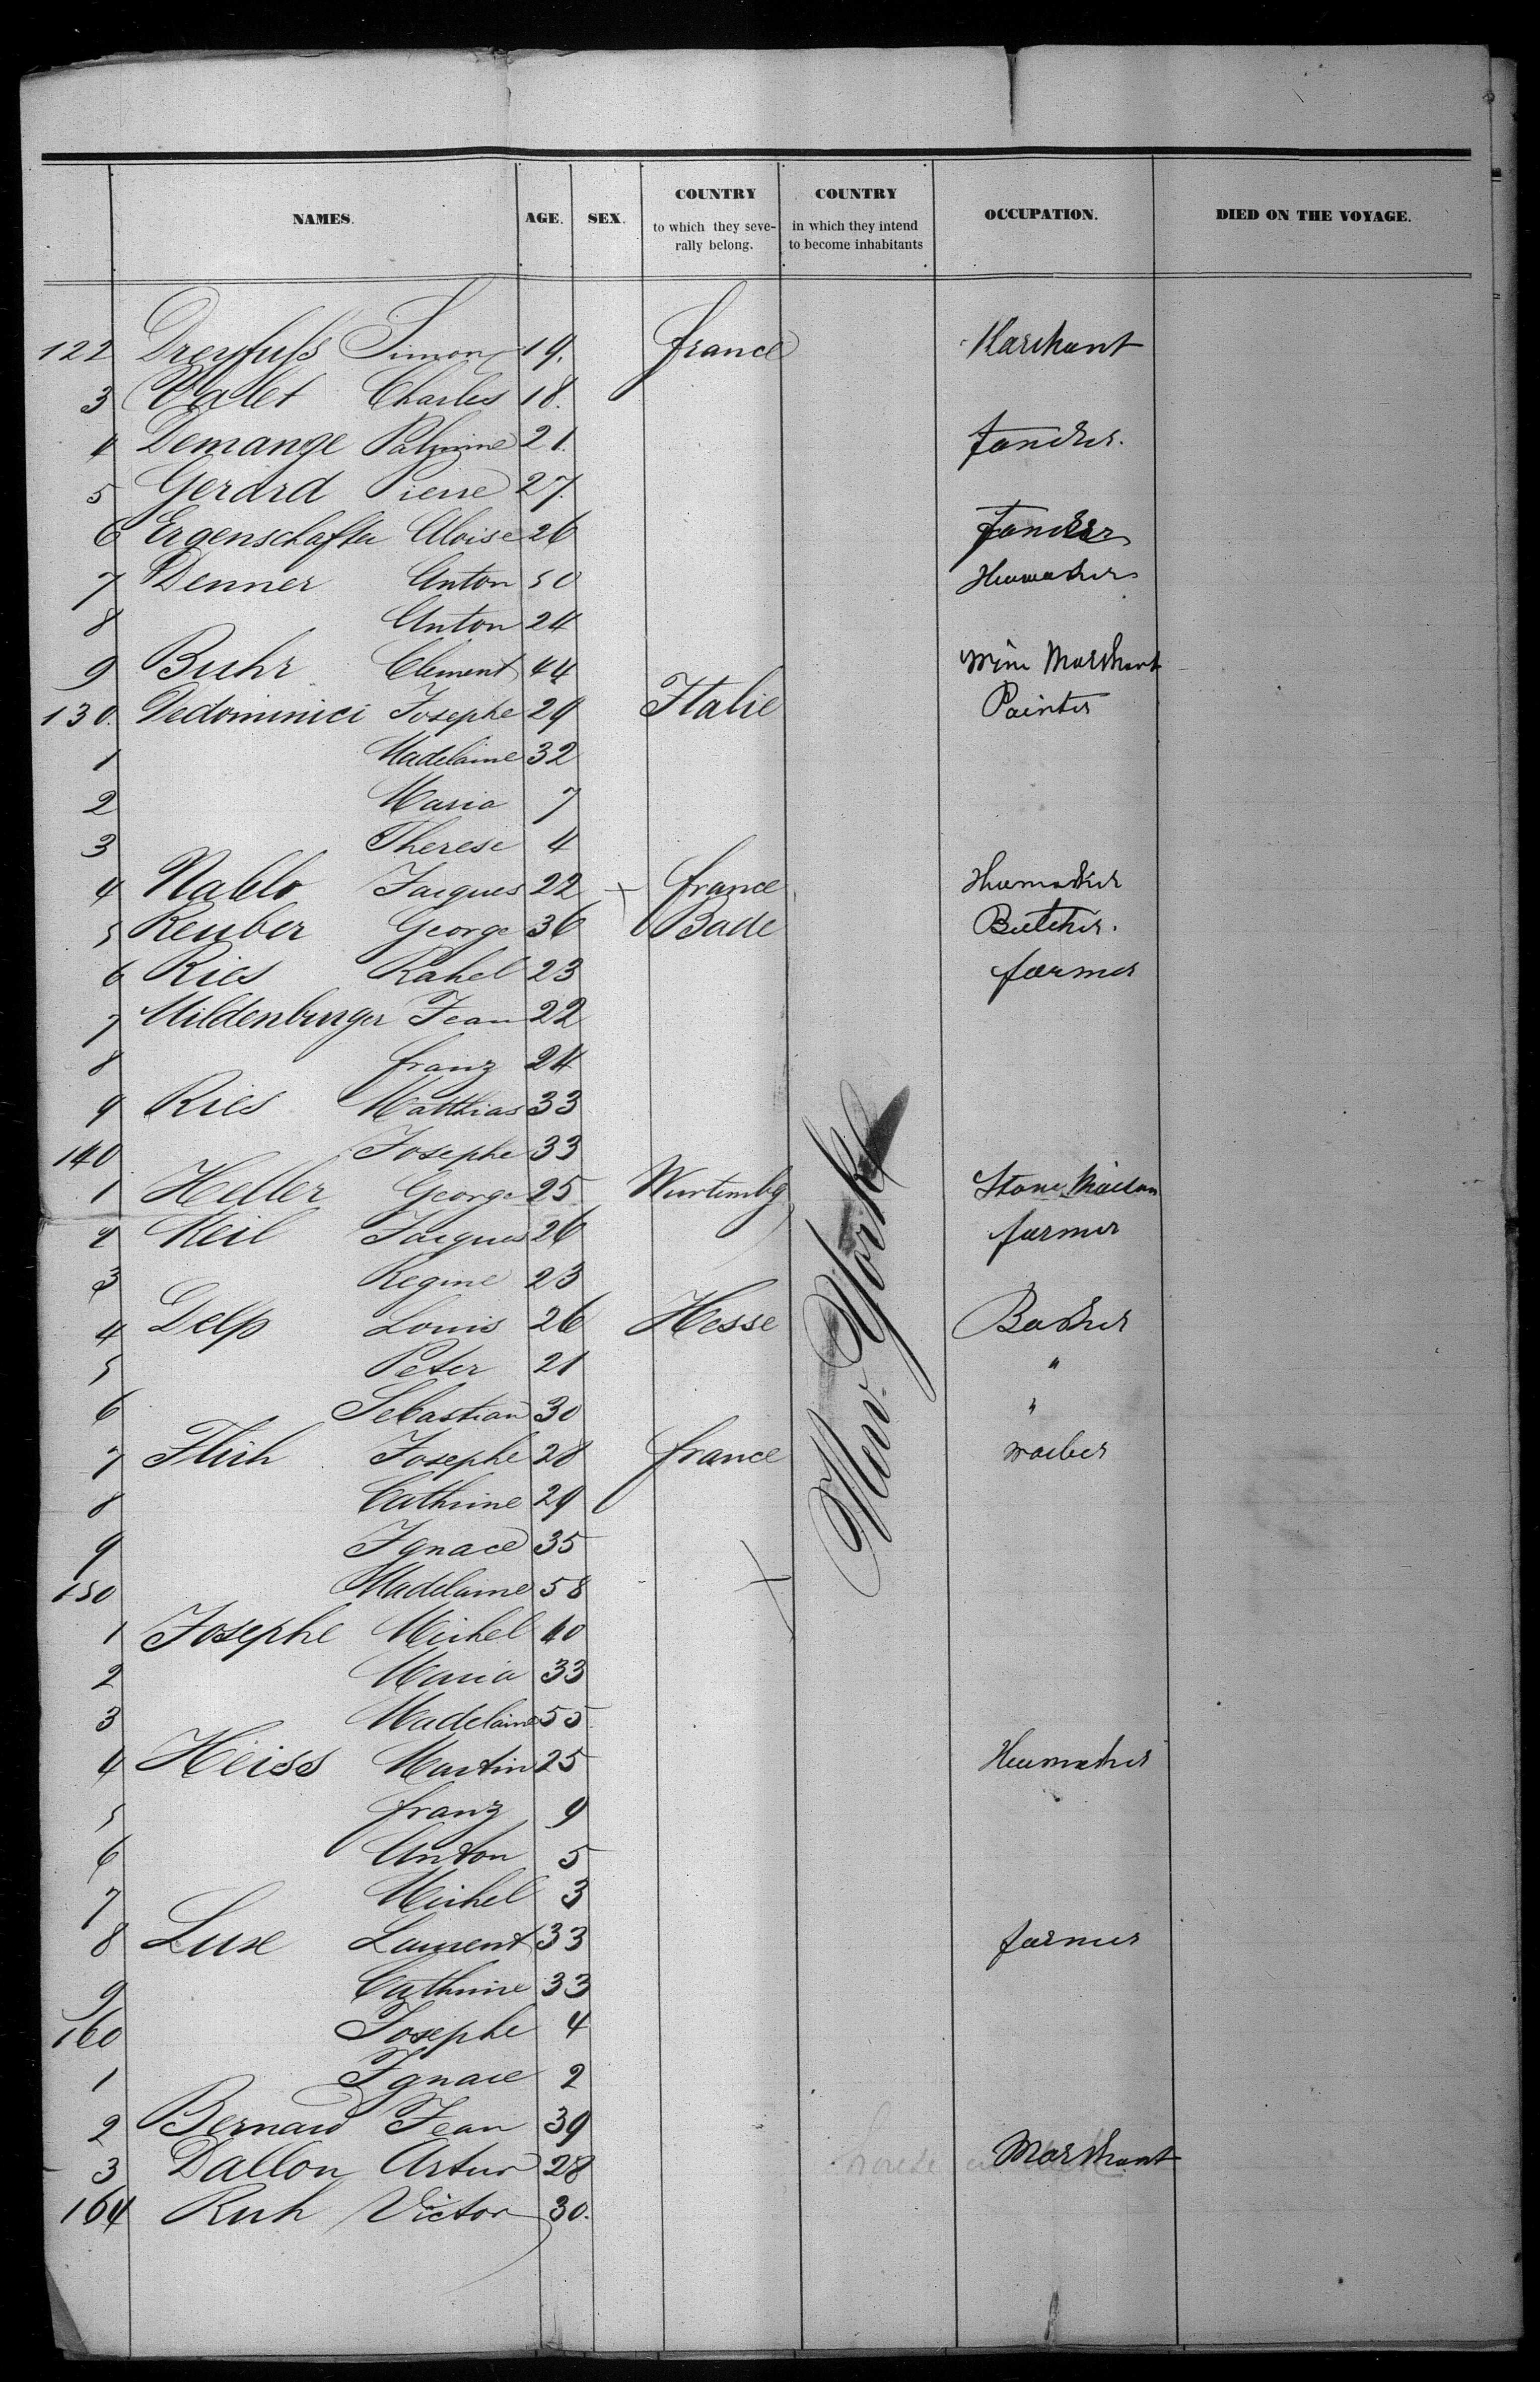 NAMES. AGE. SEX. COUNTRY to which they severally belong. COUNTRY in which they intend to become inhabitants OCCUPATION. DIED ON THE VOYAGE.
122 Dreyfuss Simon 19. france Marchant
3 Valet Charles 18.
4 Demange 21.
5 Gerard Pierre 27.
6 Ergenschafter Aloise 26
7 Denner Anton 50
8 Anton 24
9 Buhr Clement 44 Marchant
130. Dedominici Josephe 29 Italie Painter
1 Madelaine 32
2 Maria 7
3 Therese 4
4 Nablo Jacques 22 france
5 Reuber George 36 Bade Butcher.
6 Ries Rahel 23 farmer
7 Mildenburger Jean 22
8 franz 24
9 Ries Matthias 33
140 Josephe 33
1 Heller George 25 Wurtembg Stone
2 Keil Jacques 26 farmer
3 Regine 23
4 Delp Louis 26 Hesse Backer
5 Peter 21 "
6 Sebastian 30 "
7 Josephe 28 france
8 Cathrine 29
9 Ignace 35
150 Madelaine 58
1 Josephe Michel 40
2 Maria 33
3 Madelaine 55
4 Heiss Martin 25
5 franz 9
6 Anton 5
7 Michel 3
8 Luxe Laurent 33 farmer
9 Cathrine 33
160 Josephe 4
1 Ignace 2
2 Bernard Jean 39
3 Dallon Artur 28 Marchant
164 Ruh Victor 30.
New-York